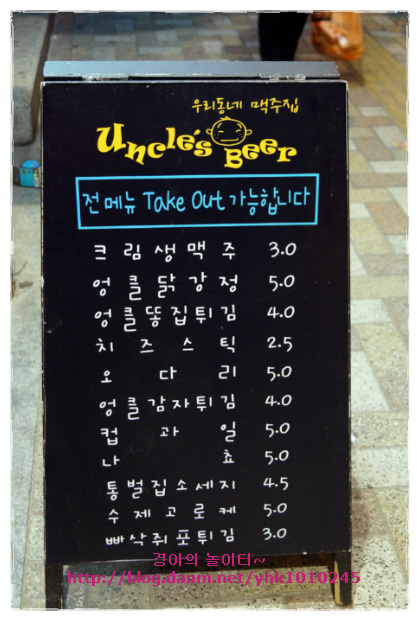 우리동네 맥주집
Uncle's Beer
전메뉴 Take Out 가능합니다
크림생맥주 3.0
엉클닭강정 5.0
엉클똥집튀김 4.0
치즈스틱 2.5
오다리 5.0
엉클감자튀김 4.0
컵과일 5.0
나쵸 5.0
통벌집소세지 4.5
수제고로케 5.0
빠삭쥐포튀김 3.0
경아의 놀이터~
http://blog.daum.net/yhk1010245